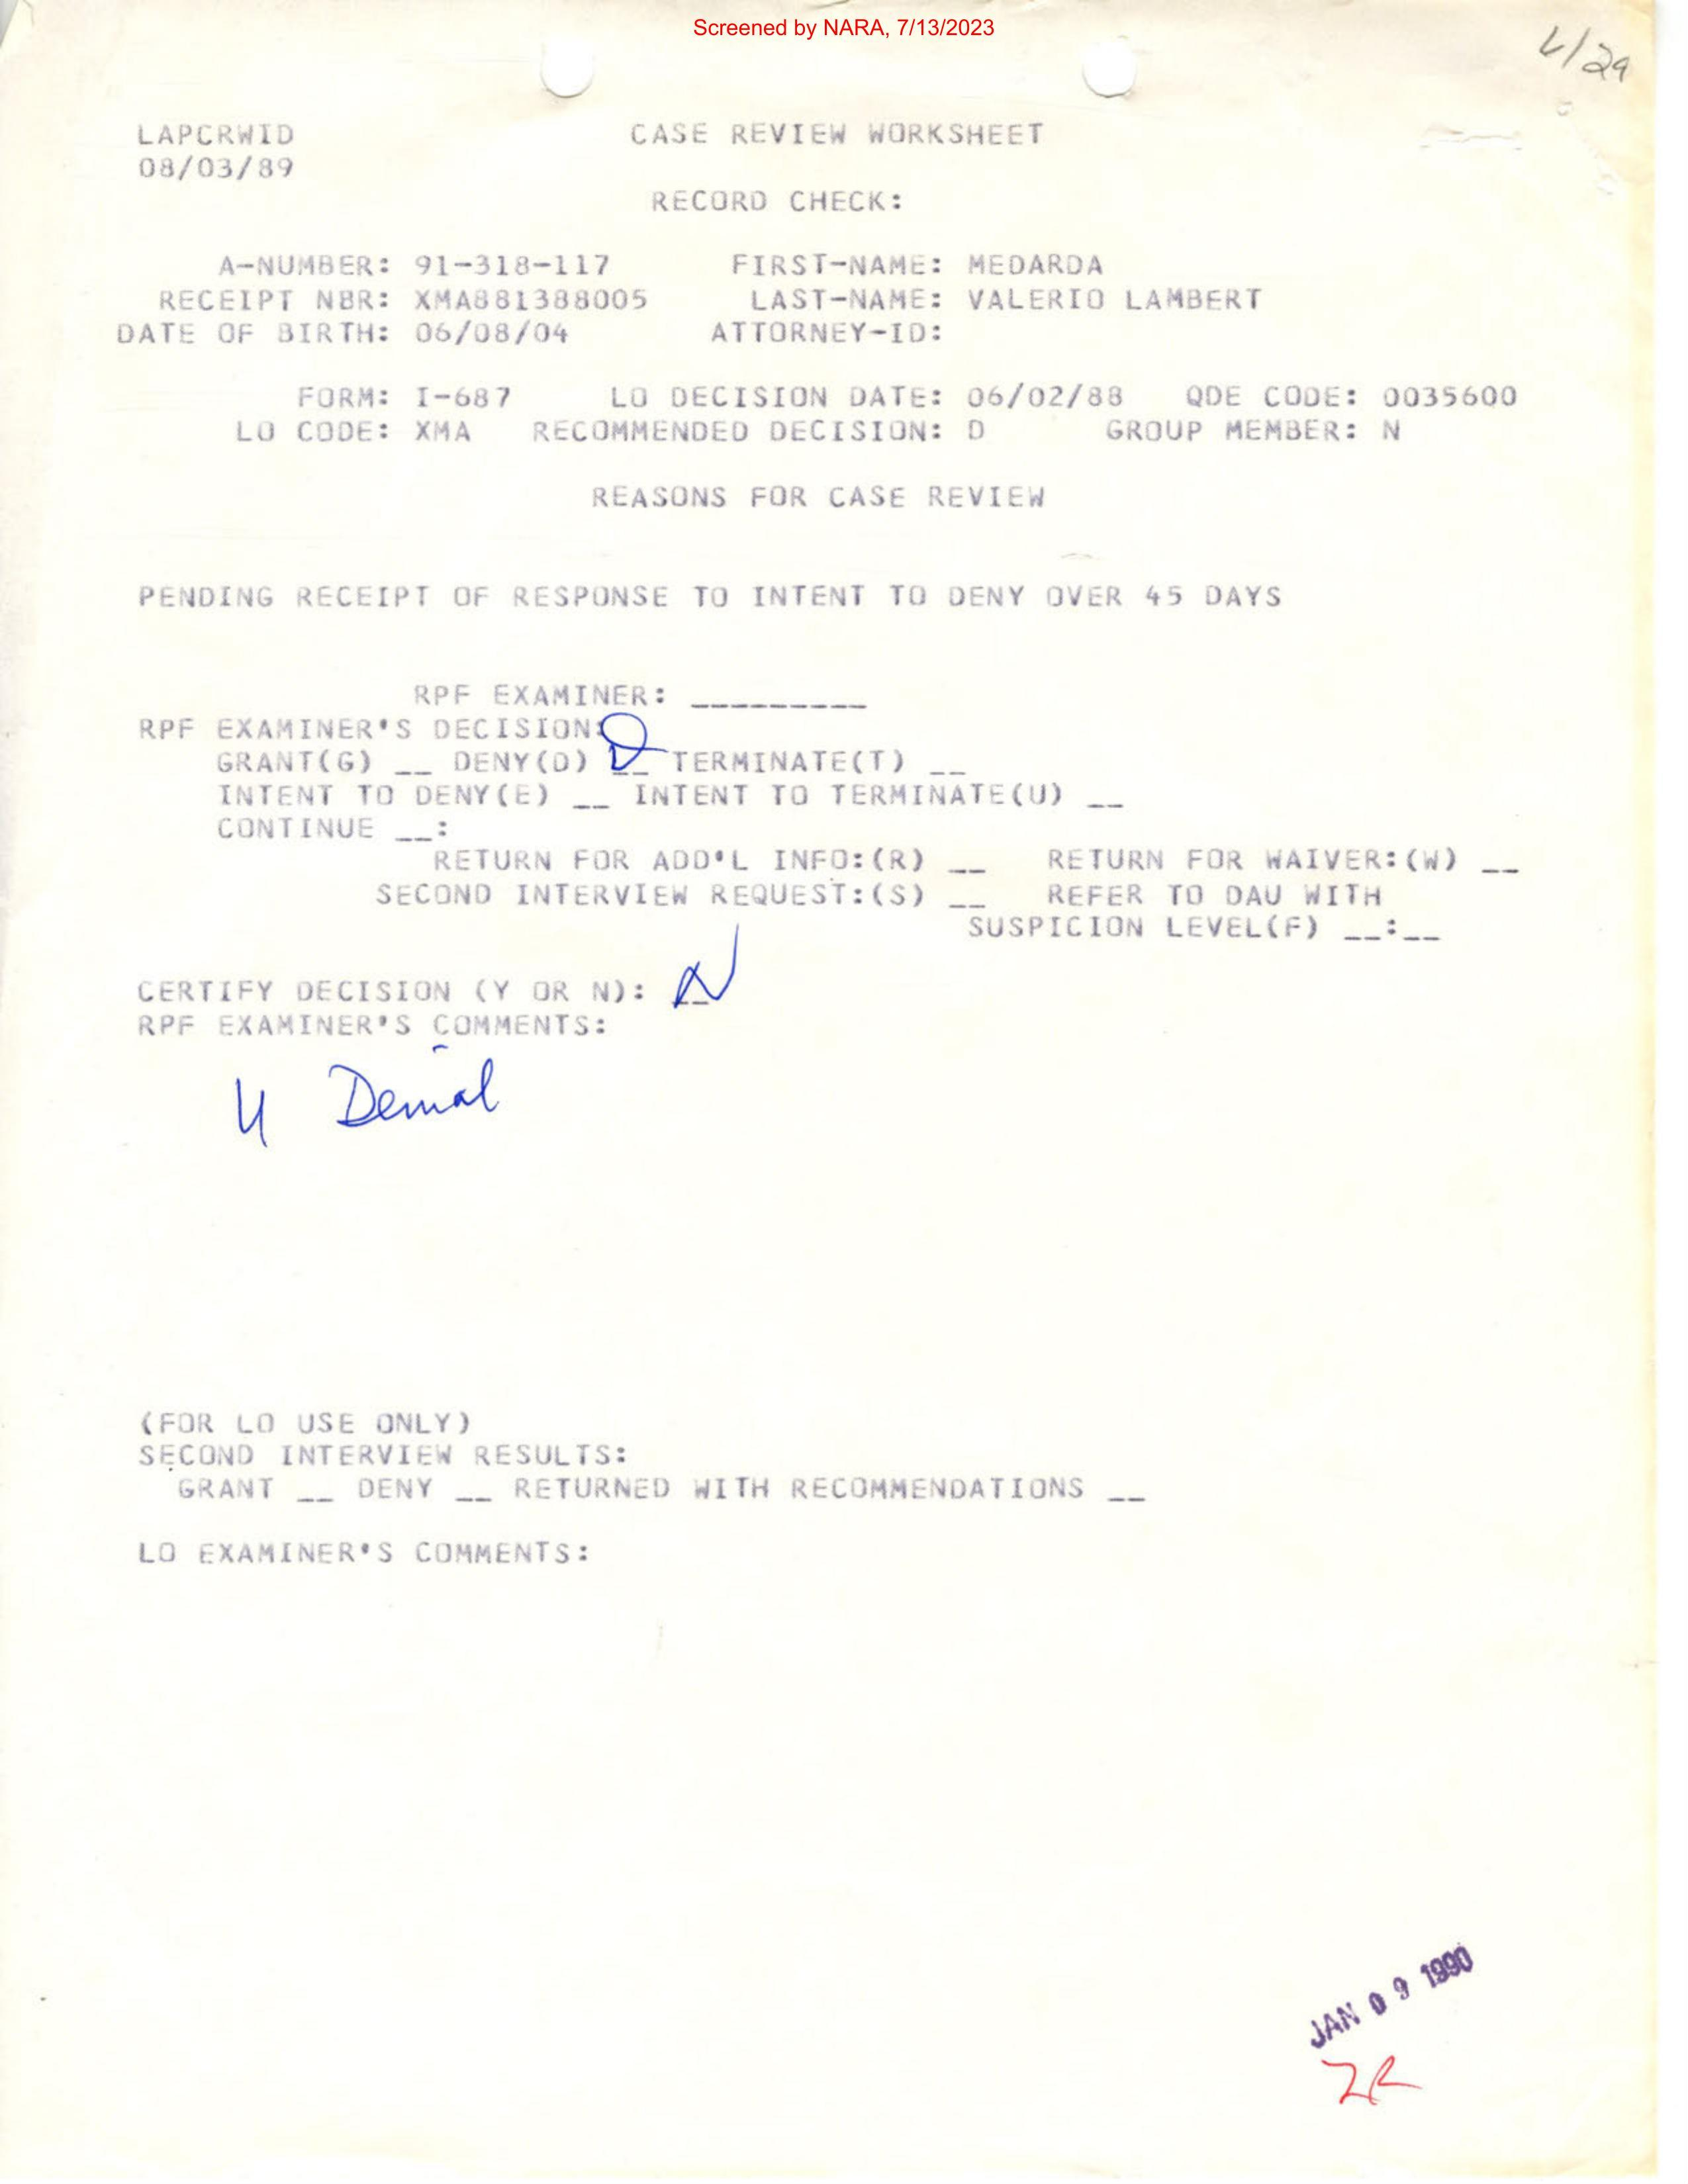 Screened by NARA, 7/13/2023
LAPCRWID CASE REVIEW WORKSHEET
08/03/89
RECORD CHECK:
A-NUMBER: 91-318-117 FIRST-NAME: MEDARDA
RECEIPT NBR: XMA881388005 LAST-NAME: VALERIO LAMBERT
DATE OF BIRTH: 06/08/04 ATTORNEY-ID:
FORM: I-687 LO DECISION DATE: 06/02/88 QDE CODE: 0035600
LO CODE: XMA RECOMMENDED DECISION: D GROUP MEMBER: N
REASONS FOR CASE REVIEW
PENDING RECEIPT OF RESPONSE TO INTENT TO DENY OVER 45 DAYS
RPF EXAMINER: _________
RPF EXAMINER'S DECISION:
GRANT(G) __ DENY(D) D TERMINATE(T) __
INTENT TO DENY(E) __ INTENT TO TERMINATE(U) __
CONTINUE __:
RETURN FOR ADD'L INFO:(R) __ RETURN FOR WAIVER:(W) __
SECOND INTERVIEW REQUEST:(S) __ REFER TO DAU WITH
SUSPICION LEVEL(F) __:__
CERTIFY DECISION (Y OR N): N
RPF EXAMINER'S COMMENTS:
Denial
(FOR LO USE ONLY)
SECOND INTERVIEW RESULTS:
GRANT __ DENY __ RETURNED WITH RECOMMENDATIONS __
LO EXAMINER'S COMMENTS:
JAN 09 1990